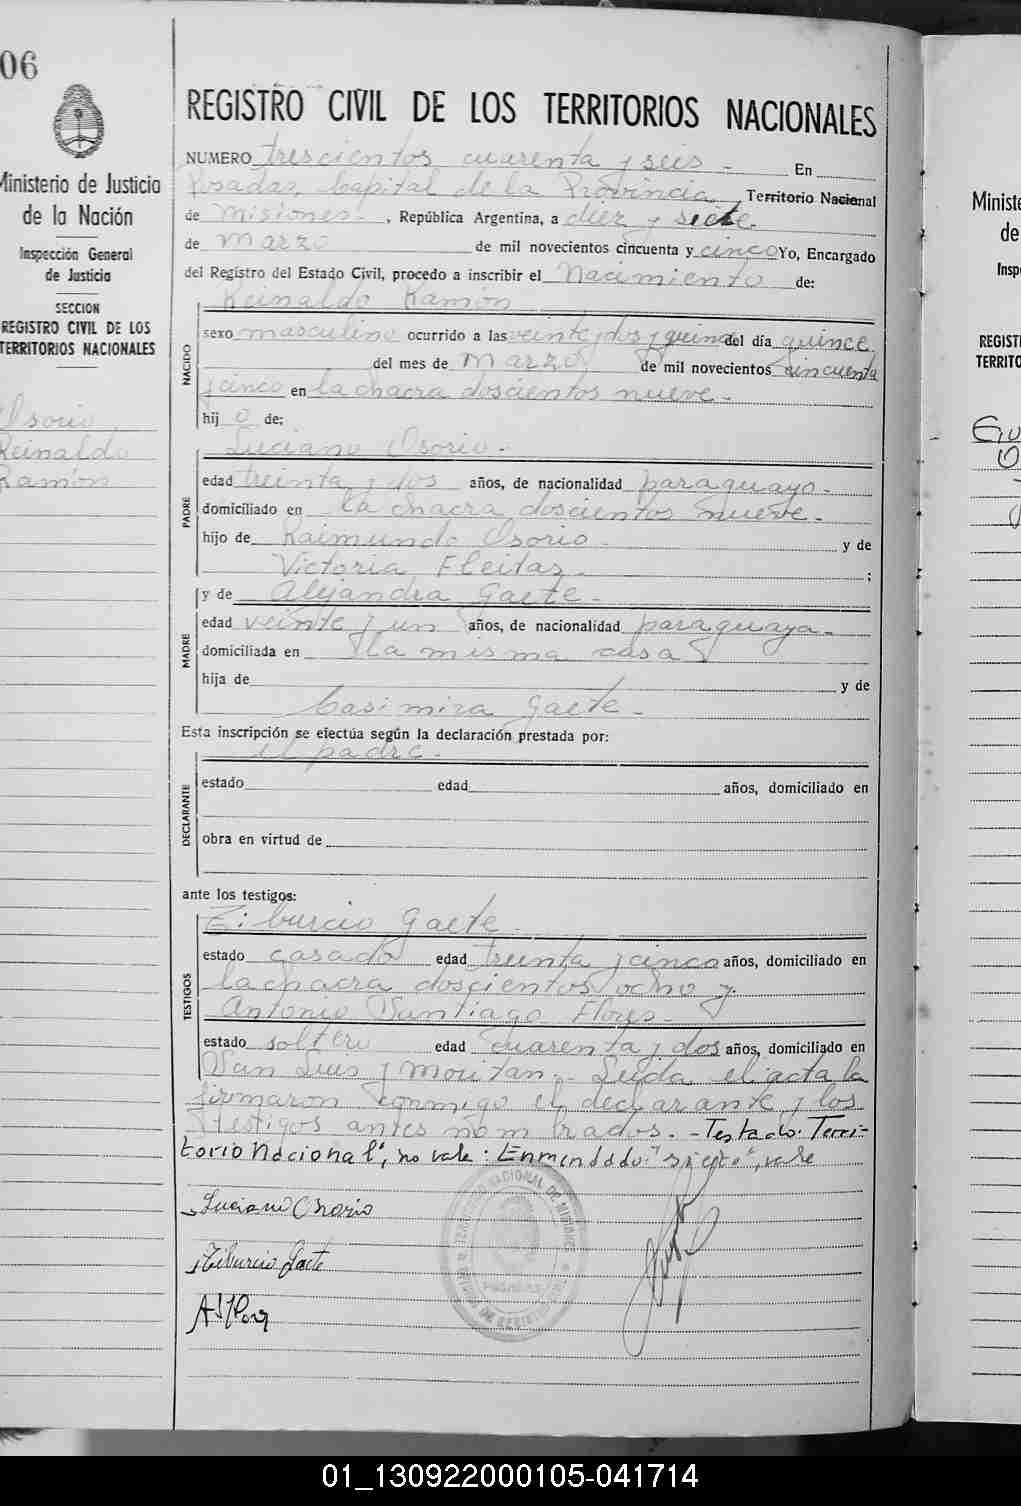 06
Ministerio de Justicia
de la Nación
Inspección General
de Justicia
SECCION
REGISTRO CIVIL DE LOS
TERRITORIOS NACIONALES
Osorio
Reinaldo
Ramón
REGISTRO CIVIL DE LOS TERRITORIOS NACIONALES
NUMERO trescientos cuarenta y seis - En
Posadas, Capital de la Provincia, Territorio Nacional
de Misiones. , República Argentina, a diez y siete
de Marzo de mil novecientos cincuenta y cinco Yo, Encargado
del Registro del Estado Civil, procedo a inscribir el Nacimiento de:
Reinaldo Ramón
NACIDO
sexo masculino ocurrido a las veinte y dos y quince del día quince
del mes de Marzo de mil novecientos cincuenta
y cinco en la chacra doscientos nueve.-
hij o de:
Luciano Osorio.-
PADRE
edad treinta y dos años, de nacionalidad paraguayo.-
domiciliado en la chacra doscientos nueve.-
hijo de Raimundo Osorio y de
Victoria Fleitas ;
y de Alejandra Gaete.-
MADRE
edad veinte y un años, de nacionalidad paraguaya.-
domiciliada en la misma casa
hija de y de
Casimira Gaete.-
Esta inscripción se efectúa según la declaración prestada por:
el padre.-
DECLARANTE
estado edad años, domiciliado en
obra en virtud de
ante los testigos:
TESTIGOS
Tiburcio Gaete
estado casado edad treinta y cinco años, domiciliado en
la chacra doscientos ocho y
Antonio Santiago Flores.-
estado soltero edad cuarenta y dos años, domiciliado en
San Luis y Moritan.- Leída el acta la
firmaron conmigo el declarante y los
testigos antes nombrados.- Testado: Terri-
torio Nacional", no vale: Enmendado: "siete", vale
Luciano Osorio
Tiburcio Gaete
A S Flores
Ministe
de
Insp
REGIST
TERRITO
01_130922000105-041714